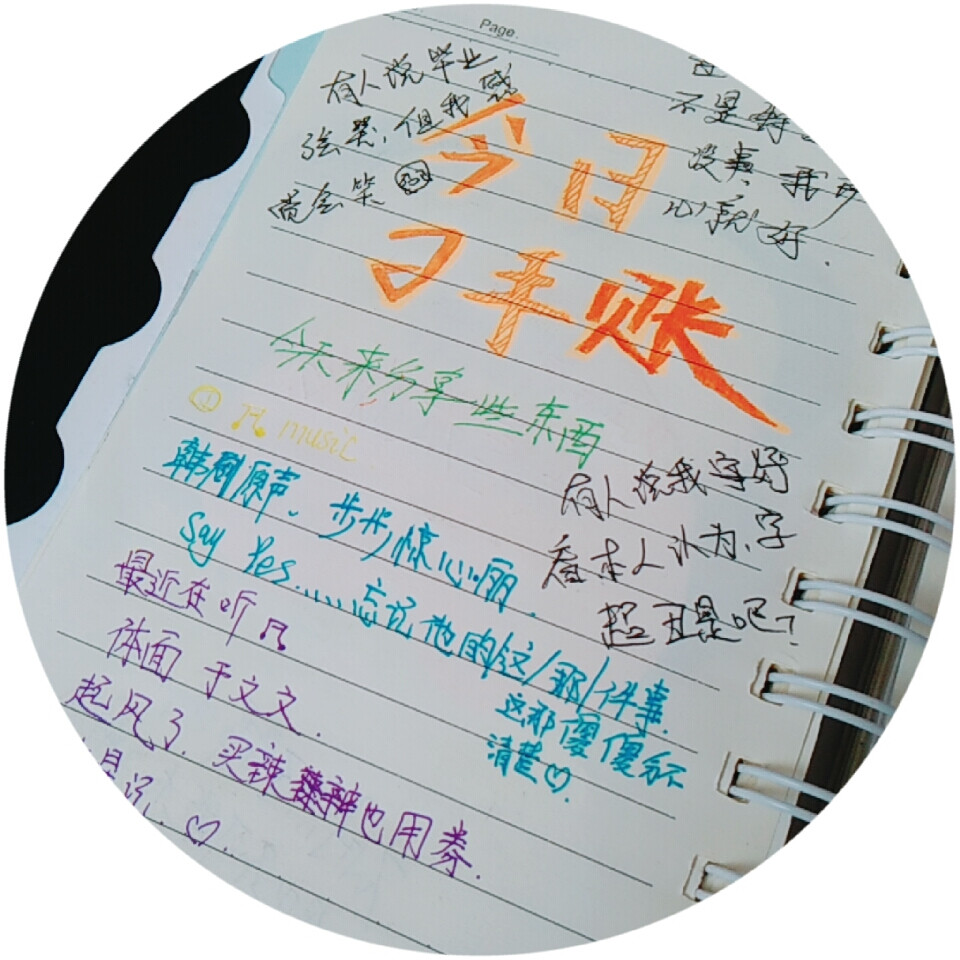 Page.
有人说毕业
感
张哭，但我
着会笑
不是
没事，我
心就好．
今日
手账
今天来分享一些东西
① music
韩剧原声。步步惊心丽．
Say Yes......忘记他的这/那/件事
这那傻傻分不
清楚♡．
有人说我字好
看本人认为，字
超丑是吧？
最近在听♫
体面 于文文．
起风了．买辣辣辣也用券．
♡．